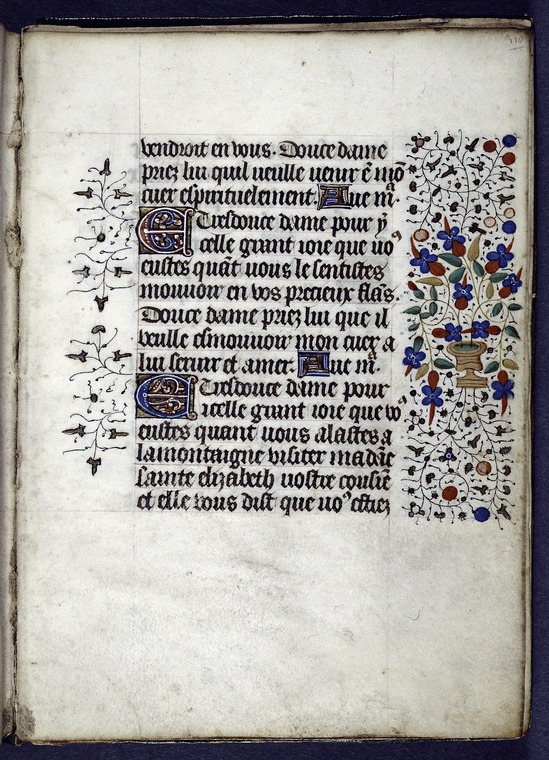 vendroit en vous. Douce dame
priez lui quil vueille venir ẽ mõ
cuer espirituelement. Aue mᵃ.
E Tresdouce dame pour y
celle grant ioie que uoꝰ
eustes quãt uous le sentistes
mouuoir en vos precieux flãs.
Douce dame priez lui que il
veulle esmouuoir mon cuer a
lui seruir et amer. Aue mᵃ.
E Tresdouce dame pour
icelle grant ioie que voꝰ
eustes quant uous alastes a
lamontaigne visiter madãe
sainte elizabeth uostre cousiẽ
et elle vous dist que uoꝰ estiez